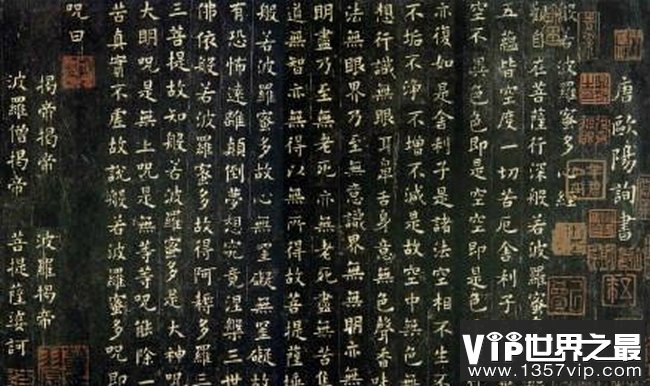 唐歐陽詢書
般若波羅蜜多心經
觀自在菩薩行深般若波羅蜜
五蘊皆空度一切苦厄舍利子
空不異色色即是空空即是色
亦復如是舍利子是諸法空相不生不
不垢不淨不增不減是故空中無色
想行識無眼耳鼻舌身意無色聲香味
法無眼界乃至無意識界無無明亦無
明盡乃至無老死亦無老死盡無苦集
道無智亦無得以無所得故菩提薩埵
般若波羅蜜多故心無罣礙無罣礙故
有恐怖遠離顛倒夢想究竟涅槃三世
佛依般若波羅蜜多故得阿耨多羅三
三菩提故知般若波羅蜜多是大神呪
大明呪是無上呪是無等等呪能除一
苦真實不虛故說般若波羅蜜多呪即
呪曰
揭帝揭帝 波羅揭帝
波羅僧揭帝 菩提薩婆訶
VIP世界之最
www.1357vip.com